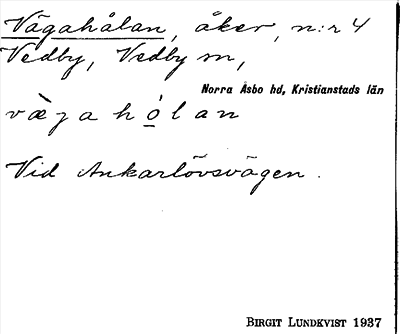 Vägahålan, åker, n:r 4
Vedby, Vedby sn,
Norra Åsbo hd, Kristianstads län
vægahọlan
Vid Ankarlövsvägen.
BIRGIT LUNDKVIST 1937